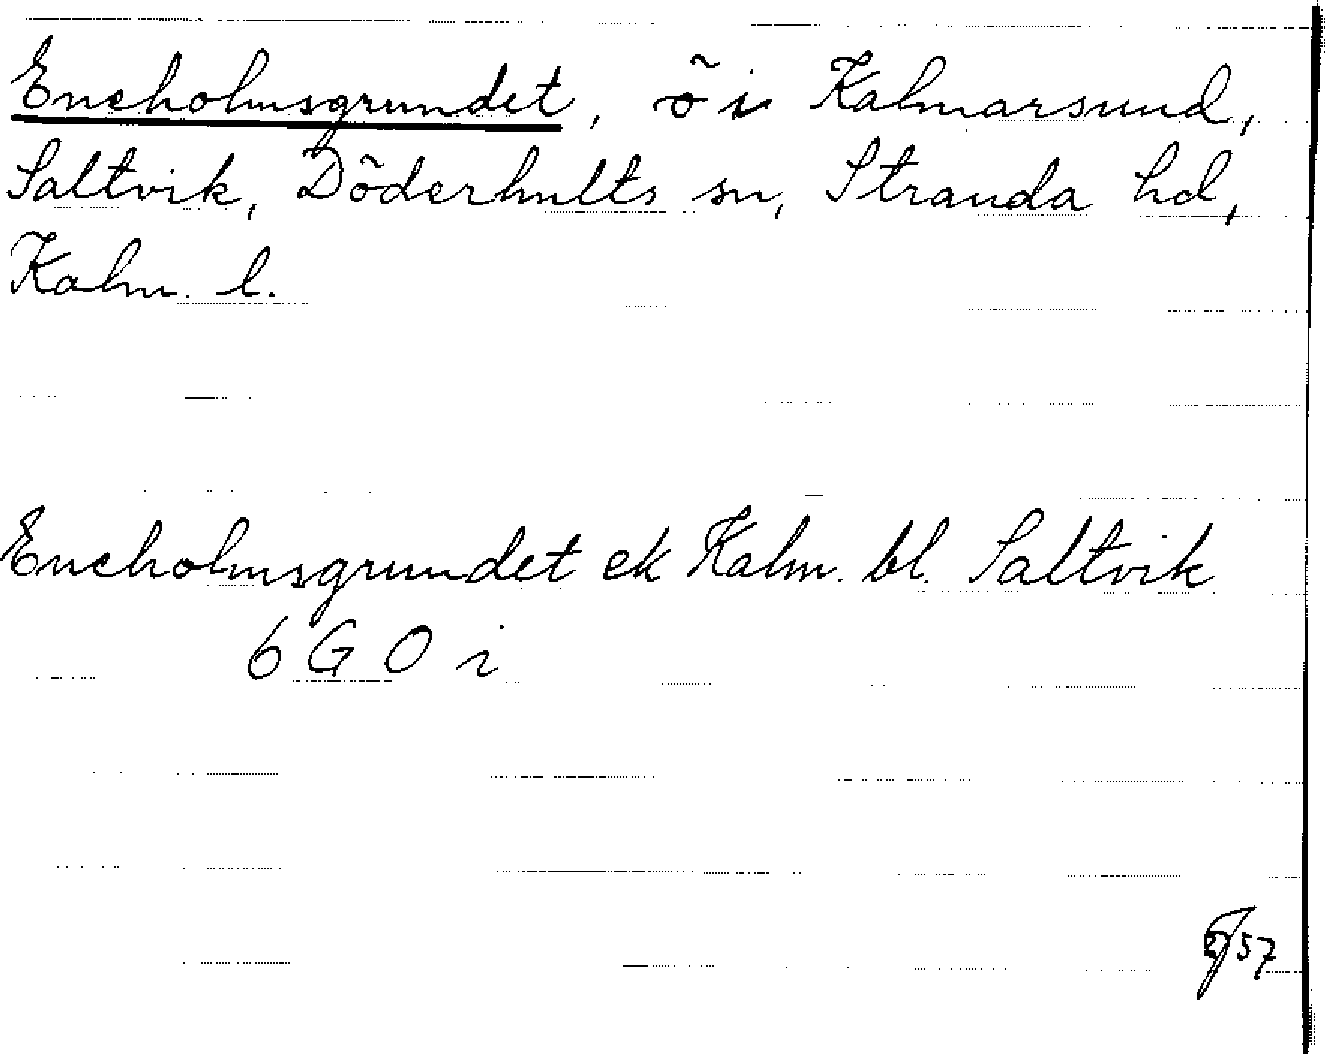 Eneholmsgrundet, ö i Kalmarsund,
Saltvik, Döderhults sn, Stranda hd,
Kalm. l.
Eneholmsgrundet ek Kalm. bl. Saltvik
6 G O i
57